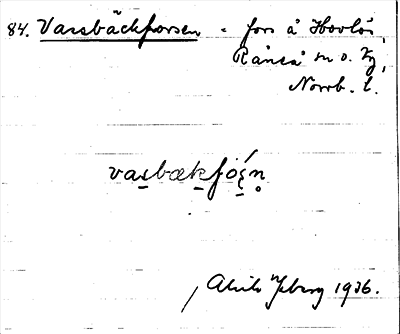 84. Vassbäckforsen - fors å Hovlös,
Råneå sn o. tg,
Norrb. l.
vasbækfo̯s̯n̥
Atils Yberg 1936.